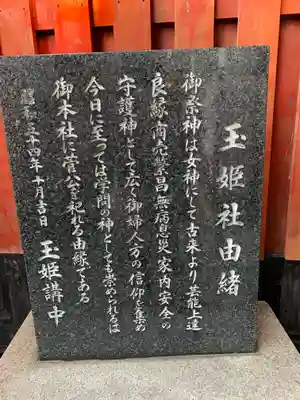 玉姫社由緒
御祭神は女神にして古来より芸能上達
良縁商売繁昌無病息災家内安全の
守護神として広く御婦人方の信仰を集め
今日に至っては学問の神としても崇められるは
御本社に菅公を祀れる由縁である
昭和五十四年十月吉日
玉姫講中